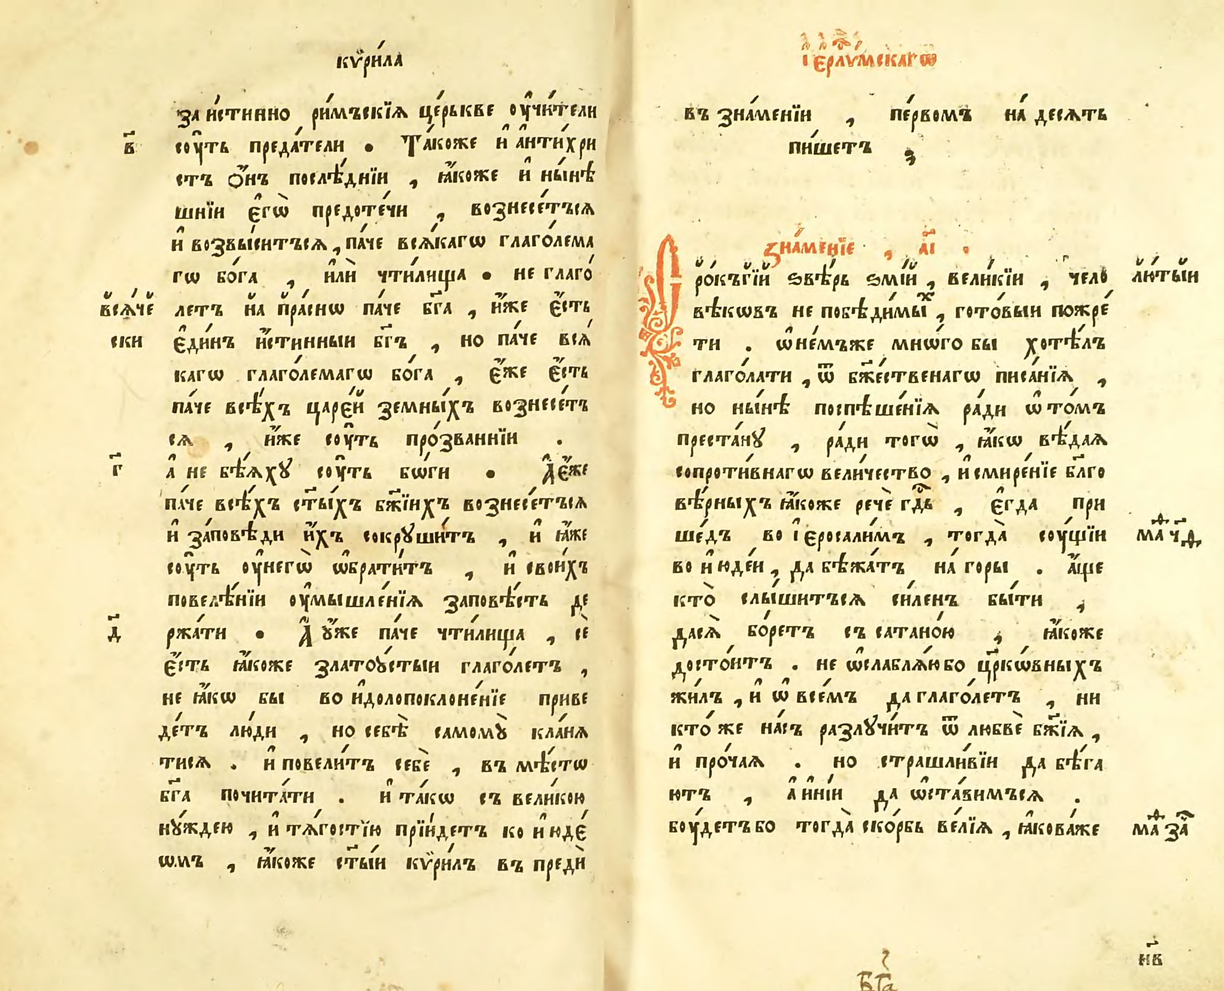 кѵ́рила
за и́стинно ри́мъскїѧ це́рькве ѹ҆чи́тели
в҃
сѹ́ть преда́тели . Та́коже и҆ а҆нти́хри
стъ о҆́нъ послѣ́днїи , ꙗ҆́коже и҆ ны́нѣ
шнїи є҆гѡ̀ предоте́чи , вознесе́тъсѧ
и҆ возвы́ситъсѧ , па́че всѧ́кагѡ глаго́лема
гѡ бо́га , и҆лѝ чти́лища . не глаго́
всѧ́че
летъ на пра́снѡ па́че бг҃а , и҆́же є҆́сть
ски
є҆ди́нъ и҆́стинныи бг҃ъ , но па́че всѧ́
кагѡ глаго́лемагѡ бо́га , є҆́же є҆́сть
па́че всѣ́хъ царе́й земны́хъ вознесе́тъ
сѧ , и҆́же сѹ́ть про́званнїи .
г҃
а҆ не бѣ́ѧхꙋ сѹ́ть бѡ́ги . А҆є҆́же
па́че всѣ́хъ ст҃ы́хъ бж҃їихъ вознесе́тъсѧ
и҆ за́повѣди и҆́хъ сокрꙋши́тъ , и҆ ꙗ҆́же
сѹ́ть ѹ҆негѡ̀ ѡ҆брати́тъ , и҆ свои́хъ
повелѣ́нїи ѹ҆мышле́нїѧ за́повѣсть де
д҃
ржа́ти . А҆ ꙋ҆́же па́че чти́лища , сѐ
є҆́сть ꙗ҆́коже златоꙋ́стыи глаго́летъ ,
не ꙗ҆́кѡ бы во и҆долопоклоне́нїе приве
де́тъ лю́ди , но себѣ̀ самомꙋ̀ кла́нѧ
тисѧ . и҆ повели́тъ себѐ , въ мѣ́стѡ
бг҃а почита́ти . и҆ та́кѡ съ вели́кою
нꙋ́ждею , и҆ тѧ́гостїю прїи́детъ ко и҆ юде́
ѡмъ , ꙗ҆́коже ст҃ы́и кѵ́рилъ въ преди̂
і҆ єрл҃ꙋ́мскагѡ
въ зна́менїи , пе́рвомъ на́ десѧть
пи́шетъ ,
зна́менїе , а҃і .
рокъгі́й ѕвѣ́рь ѕмі́й , вели́кїи , чело
лю́тыи
вѣ́кѡвъ не побѣди́мы́х , гото́выи пожре́
ти . ѡ҆не́мъже мнѡ́го бы хотѣ́лъ
глаго́лати , ѿ бж҃е́ственагѡ писа́нїѧ ,
но ны́нѣ поспѣше́нїѧ ра́ди ѡ҆ то́мъ
преста́нꙋ , ра́ди тогѡ̀ , ꙗ҆́кѡ вѣ́даѧ
сопроти́внагѡ вели́чество , и҆ смире́нїе бл҃го
вѣ́рныхъ ꙗ҆́коже речѐ гдⷭ҇ь , є҆гда при
ше́дъ во і҆ єросали́мъ , тогда̀ сѹ́щїи
маⷴ҇ ч҃д
во и҆ юде́и , да бѣжа́тъ на́ горы . а҆́ще
кто̀ слы́шитъсѧ си́ленъ бы́ти ,
дасѧ̀ бо́ретъ съ сатано́ю , ꙗ҆́коже
досто́итъ . не ѡ҆слаблѧ́ю бо цр҃ко́вныхъ
жи́лъ , и҆ ѡ҆ все́мъ да глаго́летъ , ни
кто́ же на́съ разлꙋчи́тъ ѿ любвѐ бж҃їѧ ,
и҆ про́чаѧ . но страшли́вїи да бѣ́га
ютъ , а҆ и҆ні́и да ѡ҆ста́вимъсѧ .
бѹ́детъ бо тогда̀ ско́рбь ве́лїѧ , ꙗ҆кова́же
маⷴ҇ за҃
н҃в
бг҃а